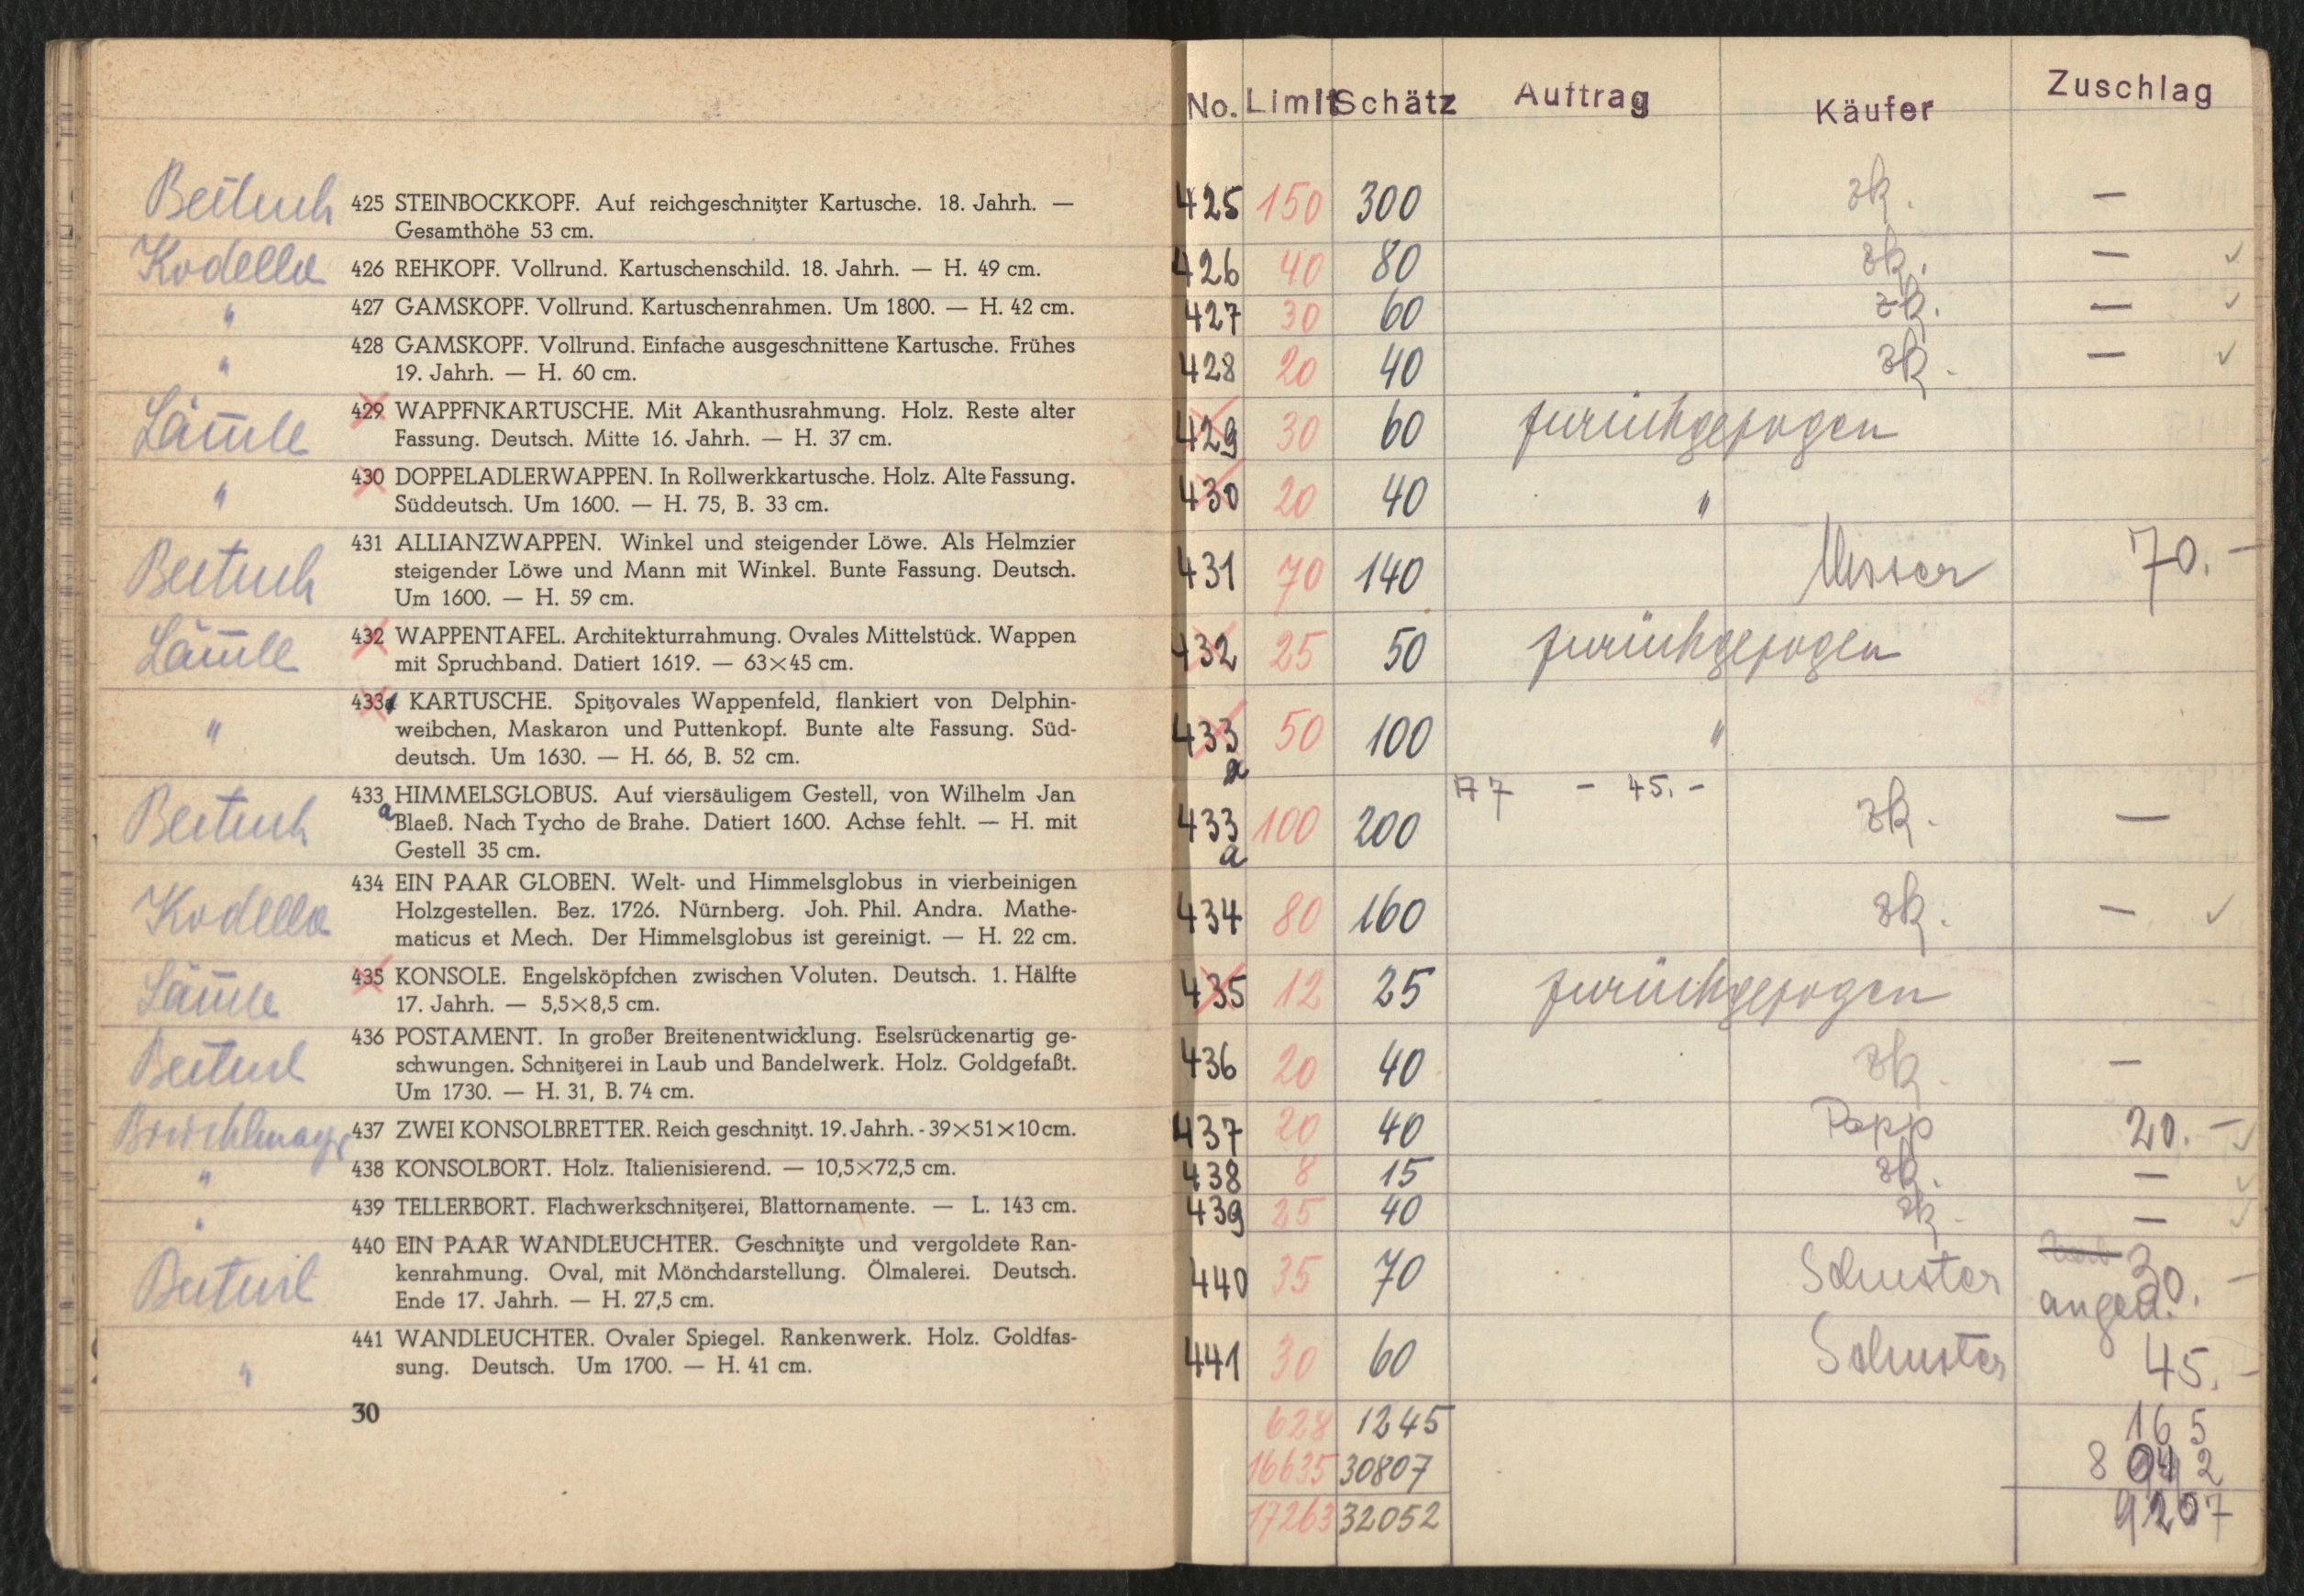 Beituch 425 STEINBOCKKOPF. Auf reichgeschnitzter Kartusche. 18. Jahrh. —
Gesamthöhe 53 cm.
Kodella 426 REHKOPF. Vollrund. Kartuschenschild. 18. Jahrh. — H. 49 cm.
" 427 GAMSKOPF. Vollrund. Kartuschenrahmen. Um 1800. — H. 42 cm.
" 428 GAMSKOPF. Vollrund. Einfache ausgeschnittene Kartusche. Frühes
19. Jahrh. — H. 60 cm.
Lämle 429 WAPPFNKARTUSCHE. Mit Akanthusrahmung. Holz. Reste alter
Fassung. Deutsch. Mitte 16. Jahrh. — H. 37 cm.
" 430 DOPPELADLERWAPPEN. In Rollwerkkartusche. Holz. Alte Fassung.
Süddeutsch. Um 1600. — H. 75, B. 33 cm.
Beituch 431 ALLIANZWAPPEN. Winkel und steigender Löwe. Als Helmzier
steigender Löwe und Mann mit Winkel. Bunte Fassung. Deutsch.
Um 1600. — H. 59 cm.
Lämle 432 WAPPENTAFEL. Architekturrahmung. Ovales Mittelstück. Wappen
mit Spruchband. Datiert 1619. — 63×45 cm.
" 433 KARTUSCHE. Spitzovales Wappenfeld, flankiert von Delphin-
weibchen, Maskaron und Puttenkopf. Bunte alte Fassung. Süd-
deutsch. Um 1630. — H. 66, B. 52 cm.
Beituch 433a HIMMELSGLOBUS. Auf viersäuligem Gestell, von Wilhelm Jan
Blaeß. Nach Tycho de Brahe. Datiert 1600. Achse fehlt. — H. mit
Gestell 35 cm.
Kodella 434 EIN PAAR GLOBEN. Welt- und Himmelsglobus in vierbeinigen
Holzgestellen. Bez. 1726. Nürnberg. Joh. Phil. Andra. Mathe-
maticus et Mech. Der Himmelsglobus ist gereinigt. — H. 22 cm.
Lämle 435 KONSOLE. Engelsköpfchen zwischen Voluten. Deutsch. 1. Hälfte
17. Jahrh. — 5,5×8,5 cm.
Beituch 436 POSTAMENT. In großer Breitenentwicklung. Eselsrückenartig ge-
schwungen. Schnitzerei in Laub und Bandelwerk. Holz. Goldgefaßt.
Um 1730. — H. 31, B. 74 cm.
437 ZWEI KONSOLBRETTER. Reich geschnitzt. 19. Jahrh. - 39×51×10 cm.
" 438 KONSOLBORT. Holz. Italienisierend. — 10,5×72,5 cm.
" 439 TELLERBORT. Flachwerkschnitzerei, Blattornamente. — L. 143 cm.
Beituch 440 EIN PAAR WANDLEUCHTER. Geschnitzte und vergoldete Ran-
kenrahmung. Oval, mit Mönchdarstellung. Ölmalerei. Deutsch.
Ende 17. Jahrh. — H. 27,5 cm.
" 441 WANDLEUCHTER. Ovaler Spiegel. Rankenwerk. Holz. Goldfas-
sung. Deutsch. Um 1700. — H. 41 cm.
30
No. Limit Schätz Auftrag Käufer Zuschlag
425 150 300 zk. —
426 40 80 zk. — ✓
427 30 60 zk. — ✓
428 20 40 zk. — ✓
429 30 60 zurückgezogen
430 20 40 "
431 70 140 Messer 70.—
432 25 50 zurückgezogen
433 50 100 "
433a 100 200 77 - 45.- zk. —
434 80 160 zk. — ✓
435 12 25 zurückgezogen
436 20 40 zk. —
437 20 40 Popp 20.— ✓
438 8 15 zk. — ✓
439 25 40 zk. — ✓
440 35 70 Schuster 30.—
441 30 60 Schuster 45.—
628 1245 165
16635 30807 8 042
17263 32052 9207